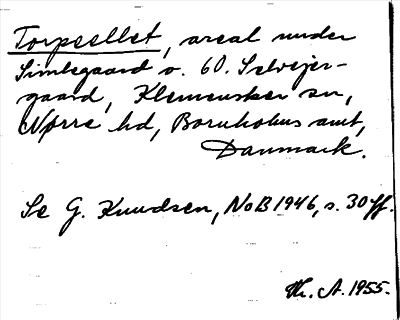 Torpeellet, areal under
Simlegaard o. 60. Selvejer-
gaard, Klemensker sn,
Nørre hd, Bornholms amt,
Danmark.
Se G. Knudsen, NoB 1946, s. 30 ff.
Th. A. 1955.